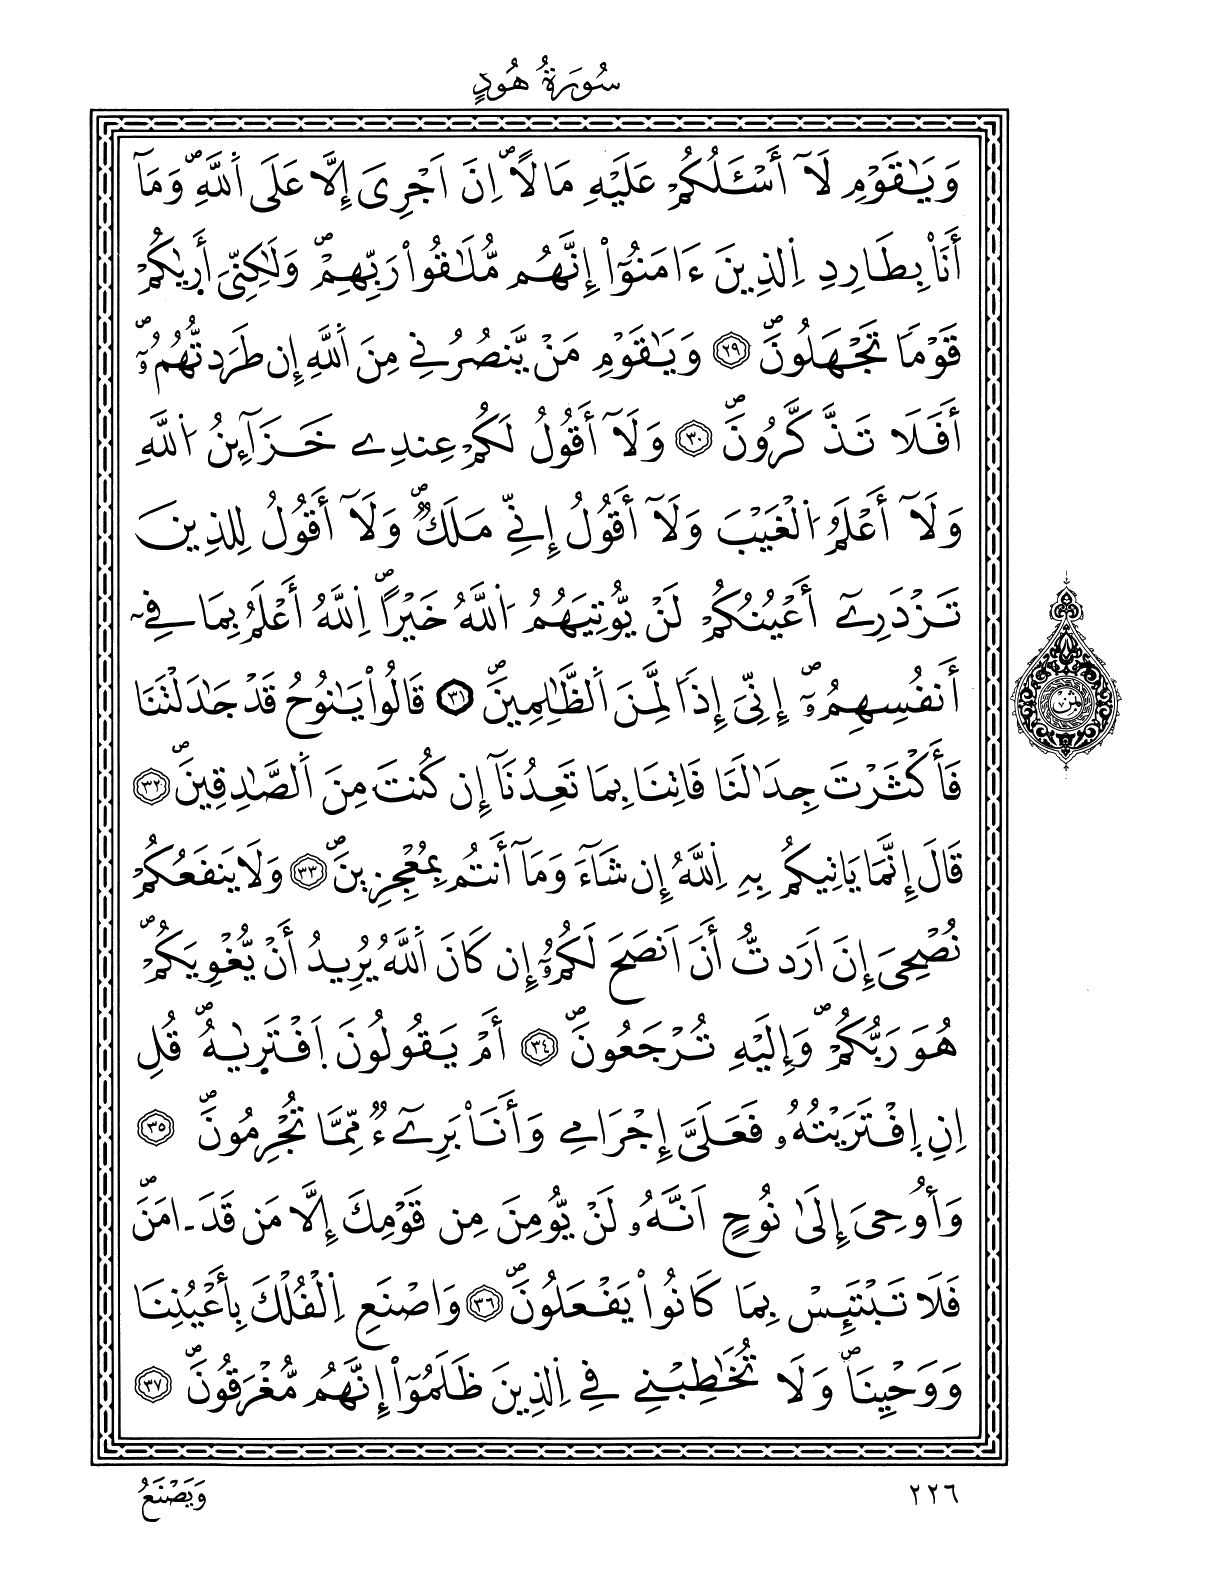 سُورَةُ هُودٍ
وَيَٰقَوْمِ لَآ أَسْـَٔلُكُمْ عَلَيْهِ مَالًاۖ اِنَ اَجْرِىَ إِلَّا عَلَى اَ۬للَّهِۖ وَمَآ
أَنَا۠ بِطَارِدِ اِ۬لذِينَ ءَامَنُوٓاْۖ إِنَّهُم مُّلَٰقُواْ رَبِّهِمْۖ وَلَٰكِنِّىَ أَر۪ىٰكُمْ
قَوْماٗ تَجْهَلُونَۖ ۝٢٩ وَيَٰقَوْمِ مَنْ يَّنصُرُنِے مِنَ اَ۬للَّهِ إِن طَرَدتُّهُمُۥٓۖ
أَفَلَا تَذَّكَّرُونَۖ ۝٣٠ وَلَآ أَقُولُ لَكُمْ عِندِے خَزَآئِنُ اُ۬للَّهِ
وَلَآ أَعْلَمُ اُ۬لْغَيْبَ وَلَآ أَقُولُ إِنِّے مَلَكٞۖ وَلَآ أَقُولُ لِلذِينَ
تَزْدَرِےٓ أَعْيُنُكُمْ لَنْ يُّوتِيَهُمُ اُ۬للَّهُ خَيْراًۖ اِ۬للَّهُ أَعْلَمُ بِمَا فِےٓ
أَنفُسِهِمُۥٓۖ إِنِّىَ إِذاٗ لَّمِنَ اَ۬لظَّٰلِمِينَۖ ۝٣١ قَالُواْ يَٰنُوحُ قَدْ جَٰدَلْتَنَا
فَأَكْثَرْتَ جِدَٰلَنَا فَاتِنَا بِمَا تَعِدُنَآ إِن كُنتَ مِنَ اَ۬لصَّٰدِقِينَۖ ۝٣٢
قَالَ إِنَّمَا يَاتِيكُم بِهِ اِ۬للَّهُ إِن شَآءَ وَمَآ أَنتُم بِمُعْجِزِينَۖ ۝٣٣ وَلَا يَنفَعُكُمْ
نُصْحِىَ إِنَ اَرَدتُّ أَنَ اَنصَحَ لَكُمُۥٓ إِن كَانَ اَ۬للَّهُ يُرِيدُ أَنْ يُّغْوِيَكُمْۖ
هُوَ رَبُّكُمْۖ وَإِلَيْهِ تُرْجَعُونَۖ ۝٣٤ أَمْ يَقُولُونَ اَ۪فْتَر۪ىٰهُۖ قُلِ
اِنِ اِ۪فْتَرَيْتُهُۥ فَعَلَىَّ إِجْرَامِے وَأَنَا۠ بَرِےٓءٞ مِّمَّا تُجْرِمُونَۖ ۝٣٥
وَأُوحِىَ إِلَىٰ نُوحٍ اَنَّهُۥ لَنْ يُّومِنَ مِن قَوْمِكَ إِلَّا مَن قَدَ ـ امَنَۖ
فَلَا تَبْتَئِسْ بِمَا كَانُواْ يَفْعَلُونَۖ ۝٣٦ وَاصْنَعِ اِ۬لْفُلْكَ بِأَعْيُنِنَا
وَوَحْيِنَاۖ وَلَا تُخَٰطِبْنِے فِے اِ۬لذِينَ ظَلَمُوٓاْ إِنَّهُم مُّغْرَقُونَۖ ۝٣٧
ثمن
٢٢٦
وَيَصْنَعُ